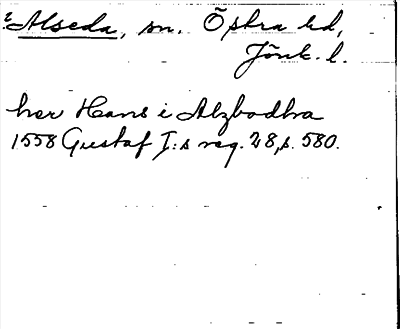 Alseda, sn. Östra hd,
Jönk. l.
her Hans i Alzbodha
1558 Gustaf I:s reg. 28, s. 580.